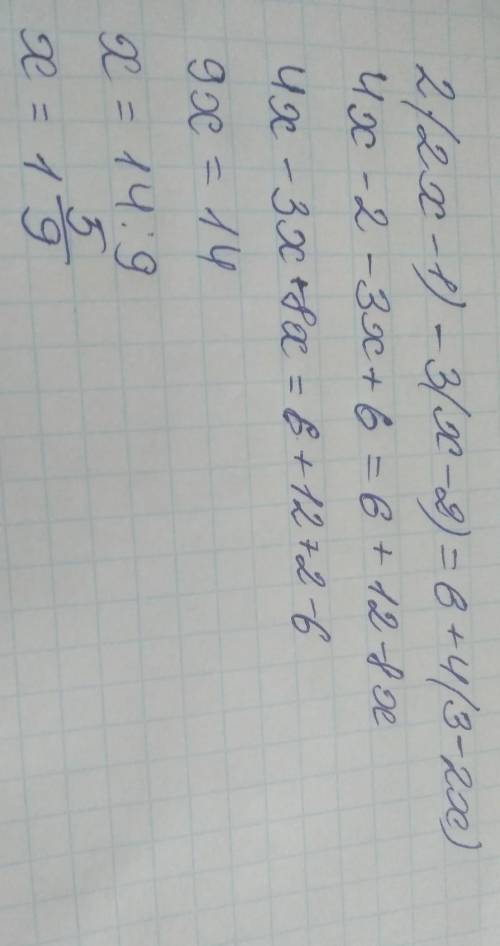 2(2x-1)-3(x-2)=6+4(3-2x)
4x-2-3x+6=6+12-8x
4x-3x+8x=6+12+2-6
9x=14
x=14:9
x=1 5/9